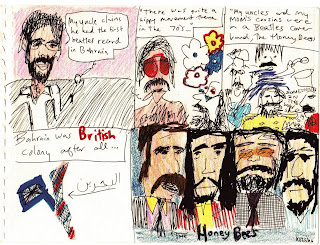 My uncle claims
he had the first
beatles record
in Bahrain
"There was quite a
hippy movement then
in the 70's...
"My uncles and my
Mom's cousins were
in a Beatles cover
band, The Honey Bees"
Bahrain was British
colony after all...
البحرين
Honey Bees